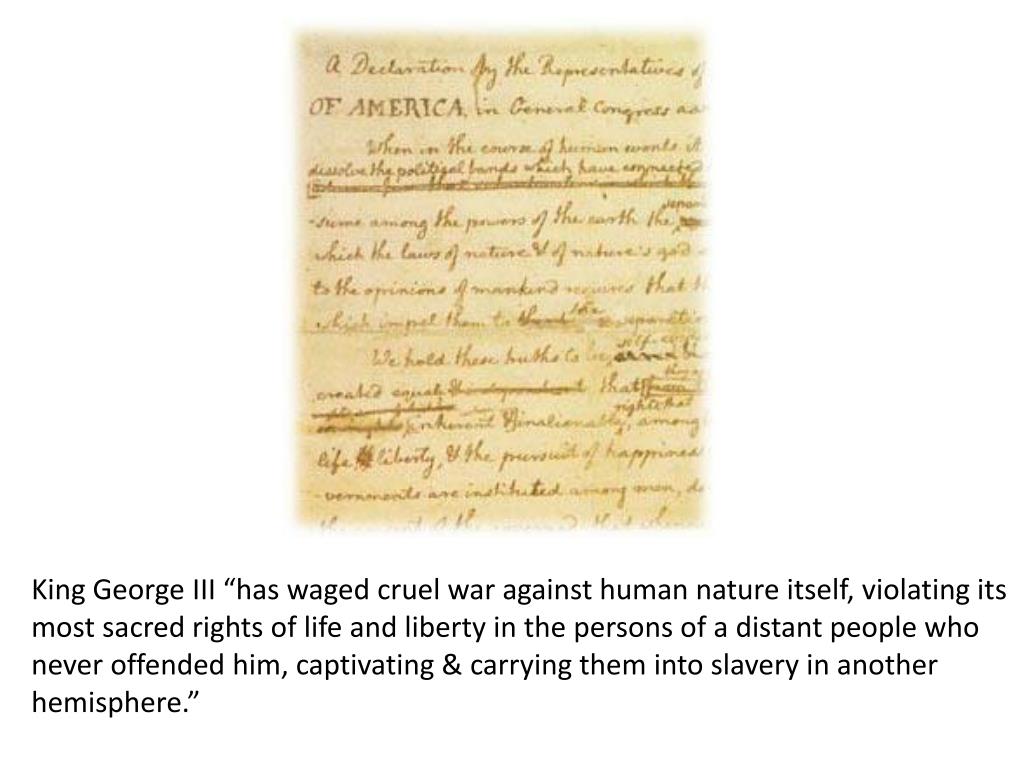 A Declaration by the Representatives of
OF AMERICA, in General Congress as
When in the course of human events it
dissolve the political bands which have connected
-sume among the powers of the earth the separ
which the laws of nature & of nature's god
to the opinions of mankind requires that th
which impel them to the separatio
We hold these truths to be self-evi
created equal, that they a
rights that
inherent & inalienable, among
life liberty, & the pursuit of happiness
-vernments are instituted among men, de
King George III “has waged cruel war against human nature itself, violating its
most sacred rights of life and liberty in the persons of a distant people who
never offended him, captivating & carrying them into slavery in another
hemisphere.”